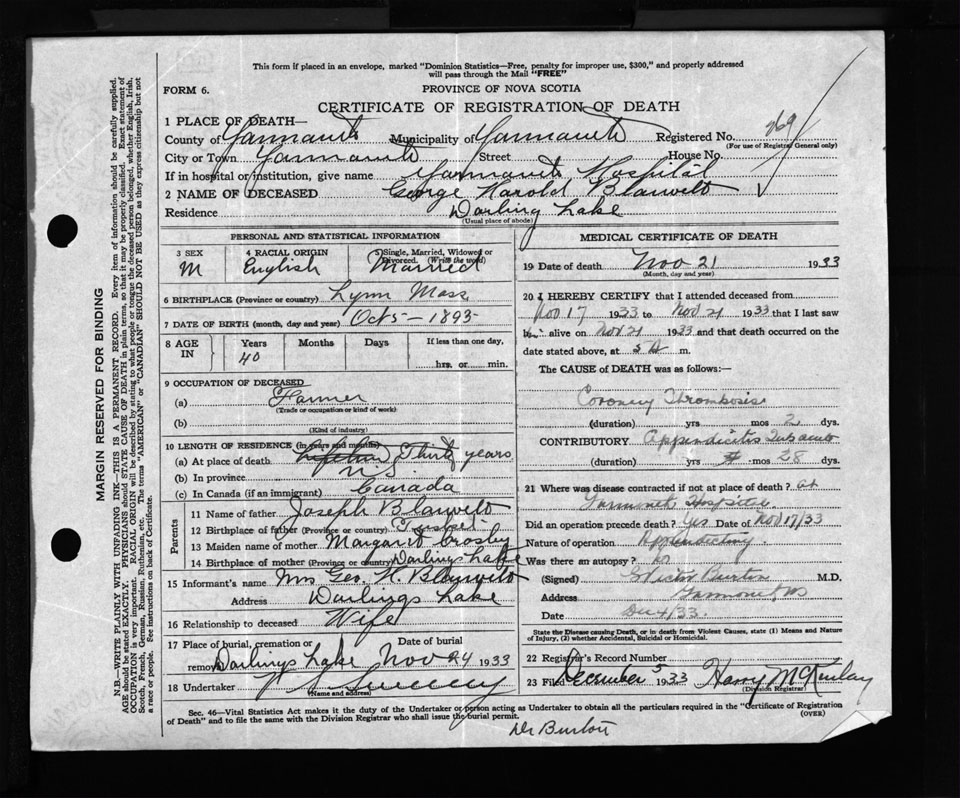 This form if placed in an envelope, marked "Dominion Statistics—Free, penalty for improper use, $300," and properly addressed
will pass through the Mail "FREE"
FORM 6.
PROVINCE OF NOVA SCOTIA
CERTIFICATE OF REGISTRATION OF DEATH
1 PLACE OF DEATH—
County of Yarmouth Municipality of Yarmouth Registered No. 269
(For use of Registrar General only)
City or Town Yarmouth Street House No.
If in hospital or institution, give name Yarmouth Hospital
2 NAME OF DECEASED George Harold Blauvelt
Residence Darling Lake
(Usual place of abode)
PERSONAL AND STATISTICAL INFORMATION
3 SEX M
4 RACIAL ORIGIN English
5 Single, Married, Widowed or Divorced. (Write the word) Married
6 BIRTHPLACE (Province or country) Lynn Mass
7 DATE OF BIRTH (month, day and year) Oct 5 - 1893
8 AGE IN Years 40 Months Days If less than one day,
hrs. or min.
9 OCCUPATION OF DECEASED
(a) Farmer
(Trade or occupation or kind of work)
(b)
(Kind of industry)
10 LENGTH OF RESIDENCE (in years and months)
(a) At place of death Lifetime Thirty years
(b) In province N.S.
(c) In Canada (if an immigrant) Canada
Parents
11 Name of father Joseph Blauvelt
12 Birthplace of father (Province or country) Tusket
13 Maiden name of mother Margaret Crosby
14 Birthplace of mother (Province or country) Darlings Lake
15 Informant's name Mrs Geo. H. Blauvelt
Address Darlings Lake
16 Relationship to deceased Wife
17 Place of burial, cremation or removal Darlings Lake Date of burial Nov 24 1933
18 Undertaker Sweeney
(Name and address)
MEDICAL CERTIFICATE OF DEATH
19 Date of death Nov 21 1933
(Month, day and year)
20 I HEREBY CERTIFY that I attended deceased from
Nov 17 1933 to Nov 21 1933 that I last saw
h alive on Nov 21 1933 and that death occurred on
date stated above, at 5 A m.
The CAUSE of DEATH was as follows:—
Coronary Thrombosis
(duration) yrs mos 2 dys.
CONTRIBUTORY Appendicitis Subacute
(duration) yrs mos 28 dys.
21 Where was disease contracted if not at place of death? at
Yarmouth Hospital
Did an operation precede death? Yes Date of Nov 17/33
Nature of operation Appendectomy.
Was there an autopsy? no
(Signed) Victor Burton M.D.
Address Yarmouth NS
Date Dec 4/33
State the Disease causing Death, or in death from Violent Causes, state (1) Means and Nature
of Injury, (2) whether Accidental, Suicidal or Homicidal.
22 Registrar's Record Number
23 Filed December 5 1933 Harry McKinlay
(Division Registrar)
Sec. 46—Vital Statistics Act makes it the duty of the Undertaker or person acting as Undertaker to obtain all the particulars required in the "Certificate of Registration
of Death" and to file the same with the Division Registrar who shall issue the burial permit.
(OVER)
Dr Burton
MARGIN RESERVED FOR BINDING
N.B.—WRITE PLAINLY WITH UNFADING INK—THIS IS A PERMANENT RECORD. Every item of information should be carefully supplied.
AGE should be stated EXACTLY. PHYSICIANS should STATE CAUSE OF DEATH in plain terms, so that it may be properly classified. Exact statement of
OCCUPATION is very important. RACIAL ORIGIN will be described by stating to what people or tongue the deceased person belonged, whether English, Irish,
Scotch, French, German, Russian, Ruthenian, etc. The terms "AMERICAN" or "CANADIAN" SHOULD NOT BE USED as they express citizenship but not
a race or people. See instructions on back of Certificate.